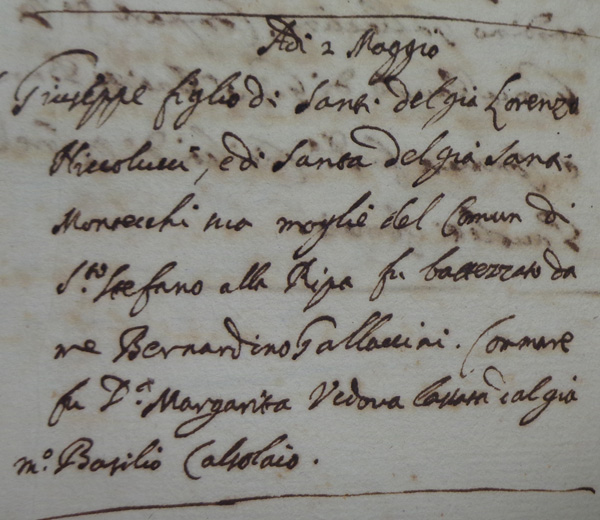 Adi 2 Maggio
Giuseppe figlio di Santi del già Lorenzo
Niccolucci, e di Santa del già Santi
Montecchi sua moglie del Comun di
S.to Stefano alla Ripa fu battezzato da
me Bernardino Gallaccini. Commare
fu D.a Margarita Vedova lassata dal già
m.o Basilio Calsolaio.